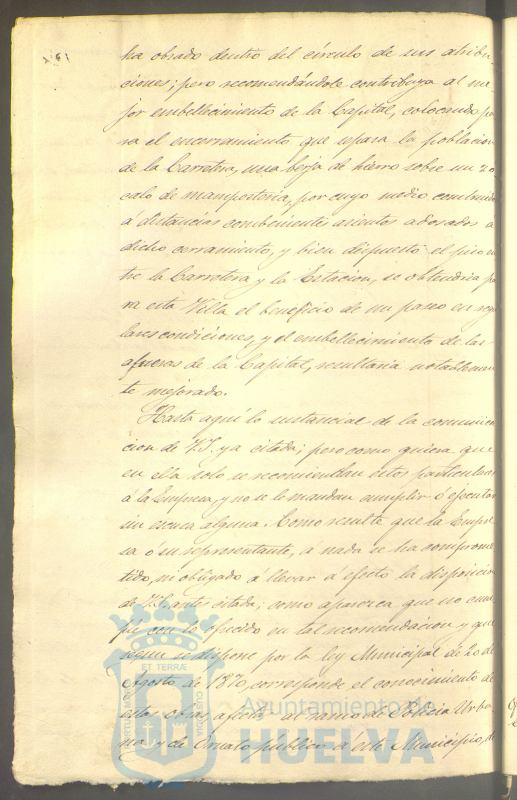 ha obrado dentro del círculo de sus atribu-
ciones; pero recomendándole contribuya al ma-
jor embellecimiento de la Capital, colocando pa-
ra el encerramiento que separa la poblacion
de la Carretera, una berja de hierro sobre un zo-
calo de manposteria, por cuyo medio construido
á distancias combenientes asientos adosados á
dicho cerramiento, y bien dispuesto el piso en
tre la Carretera y la Estacion, se obtendria pa
ra esta Villa el beneficio de un paseo en regu
lares condiciones, y el embellecimiento de las
afueras de la Capital, resultaria notablemen
te mejorado.
Hasta aquí lo sustancial de la comunica
cion de V.S. ya citada; pero como quiera que
en ella solo se recomiendan estos particulares
á la Empresa, y no se le mandan cumplir ó ejecutar
sin escusa alguna. Como resulte que la Empre
sa ó su representante, á nada se ha comprome
tido, ni obligado á llevar á efecto la disposicion
de V.S. antes citada; como aparezca que no cum
ple con lo ofrecido en tal recomendacion y que
segun se dispone por la ley Municipal de 20 de
Agosto de 1870, corresponde el conocimiento de
estas obras, afectas al ramo de Policia Urba
na y de Ornato público á este Municipio, de
ET TERRÆ
Ayuntamiento de
HUELVA